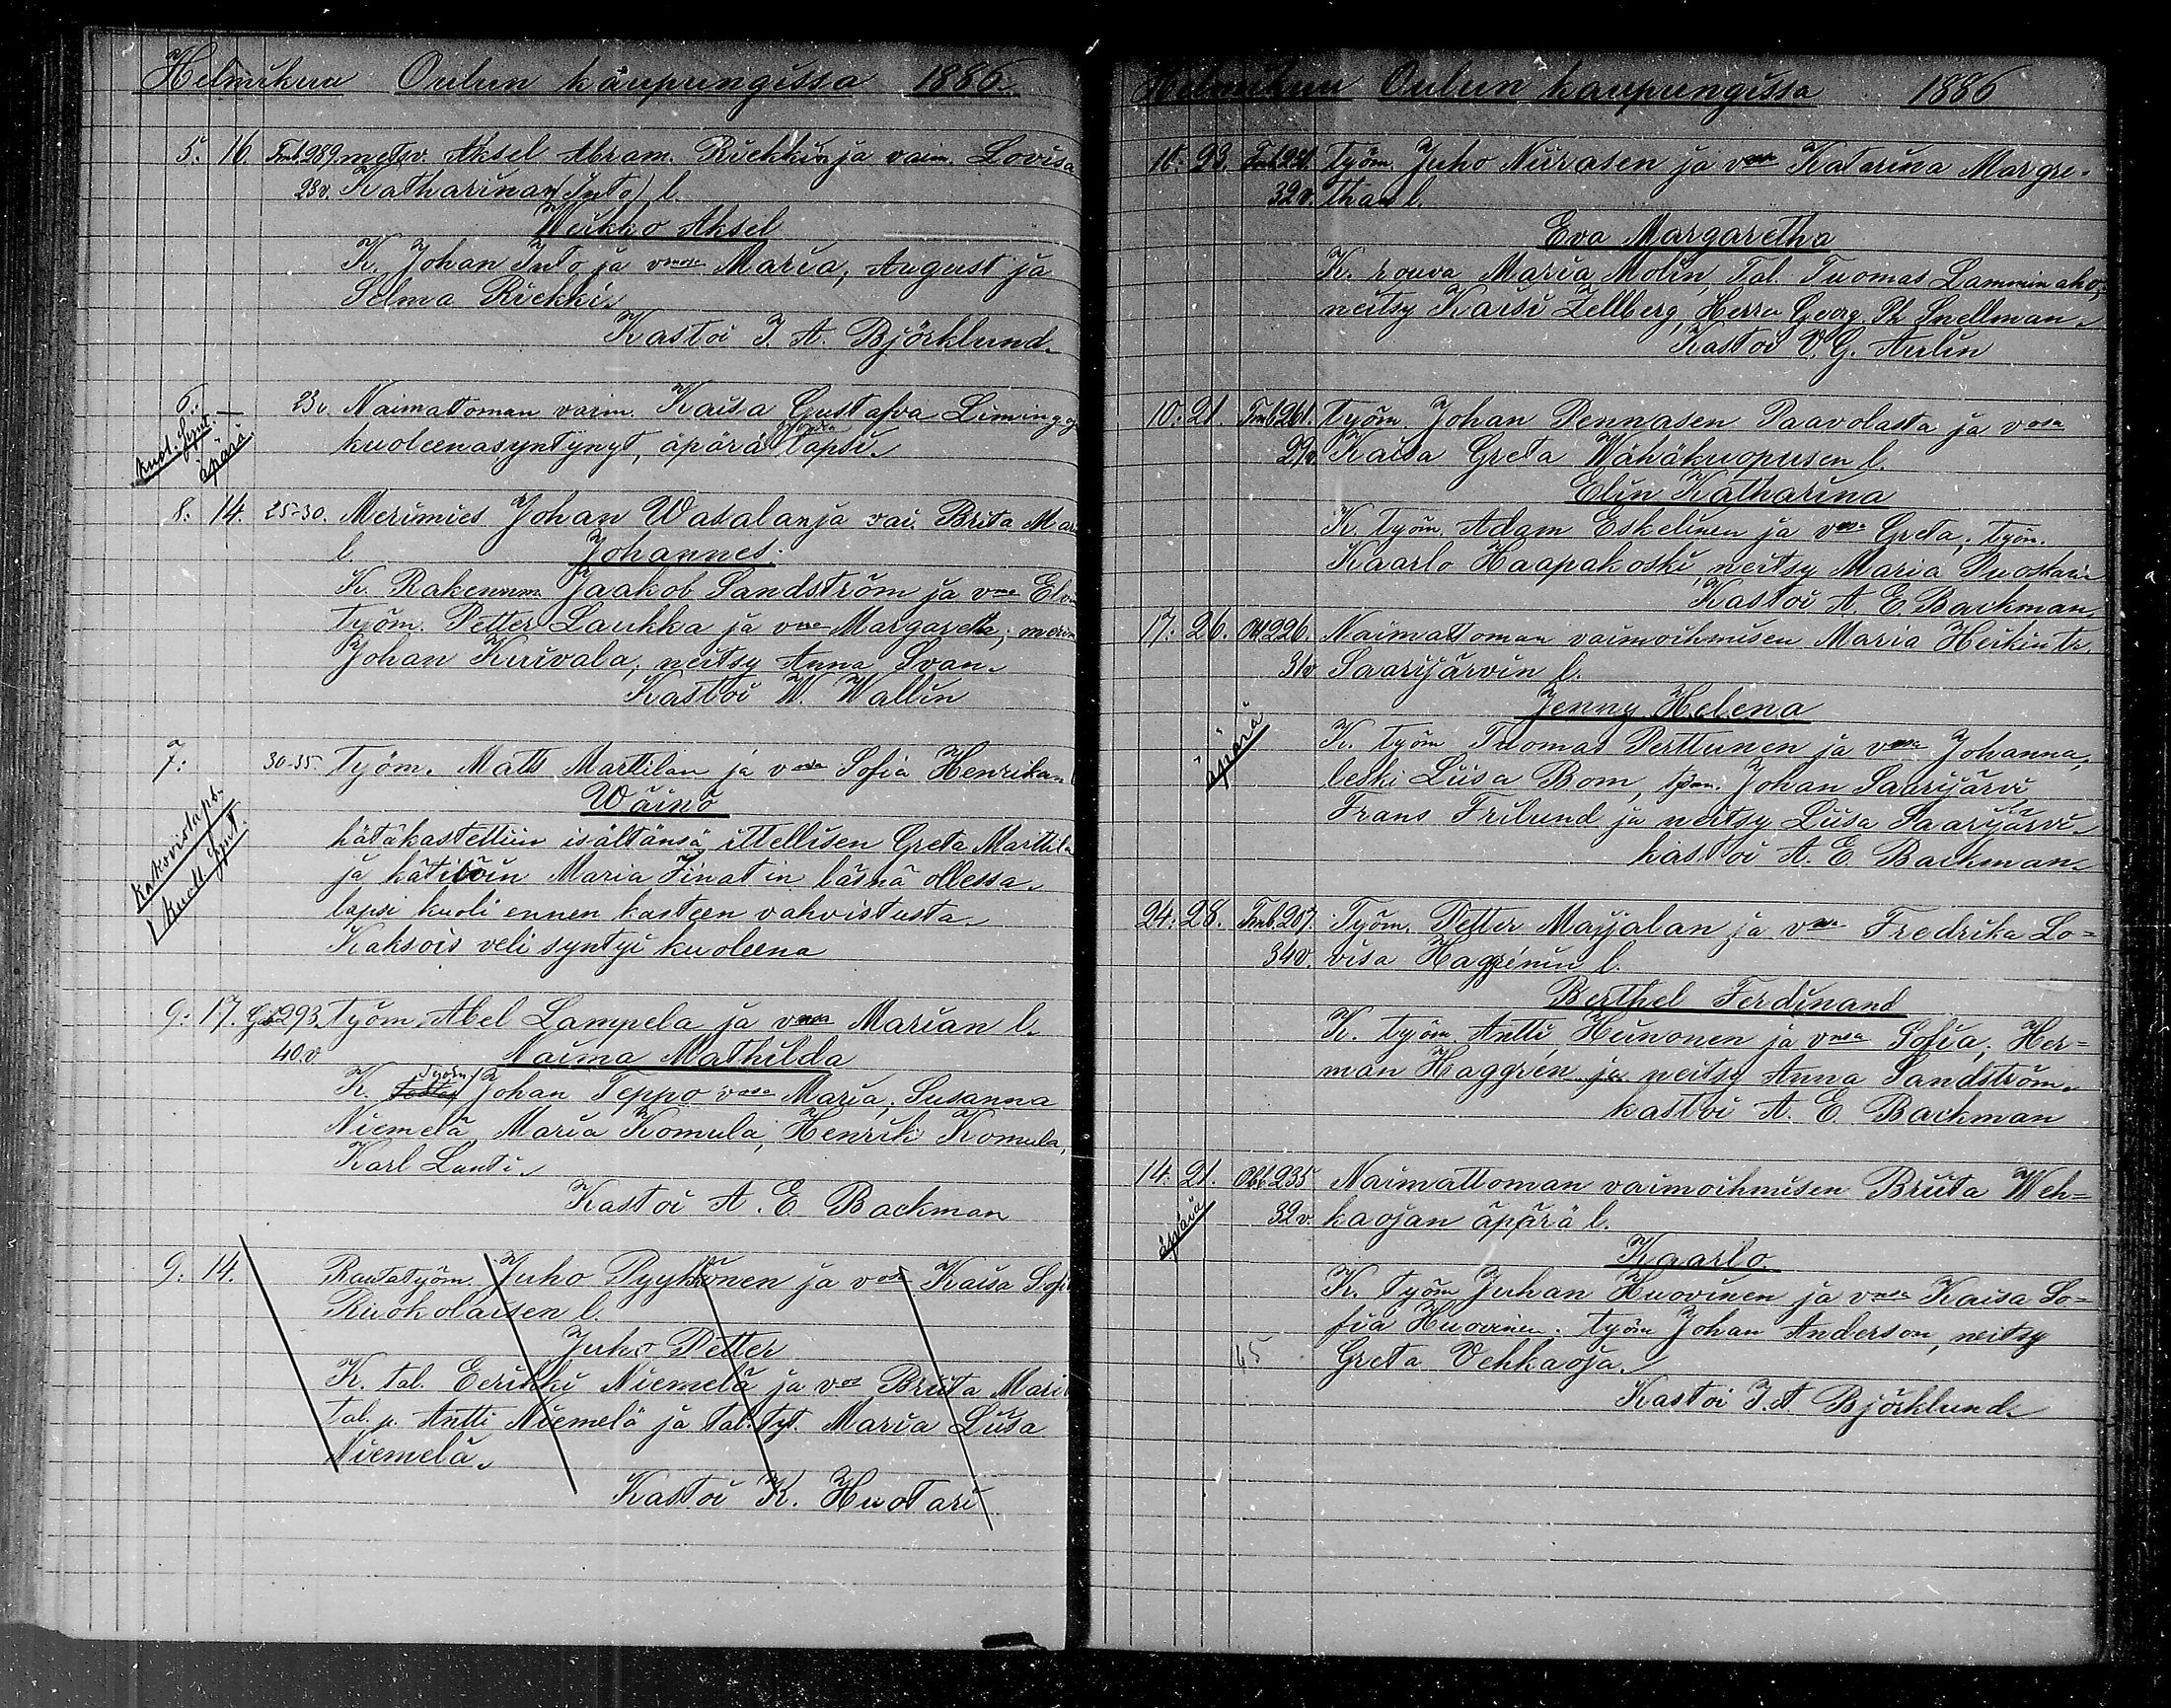 Helmikuu Oulun kaupungissa 1886.
5. 16. Tml. 289. metsv. Aksel Abram. Riekkin ja vaim. Lovisa
23v. Katharinan (Into) l.
Weikko Aksel
K. Johan Into ja vmonsa Maria, August ja
Selma Riekki.
Kastoi J. A. Björklund.
6: — 23v. Naimattoman vaim. Kaisa Gustafva Liminggo
kuol. synt.
äpärä.
kuoleenasyntynyt, äpärä lapsi.
8. 14. 25-30. Merimies Johan Wasalan ja vai. Brita Mar
l. Johannes.
K. Rakennm. Jaakob Sandström ja vmo
työm. Petter Laukka ja vmo Margareta; merim
Johan Kuivala, neitsy Anna Svan.
Kastoi W. Wallin
7: 30-35. työm. Matts Martilan ja vmosa Sofia Henrikan
Wäinö
kaksoistaps.
1 kuoll. synt.
hätäkastettiin isältänsä ittellisen Greta Marttila
ja kätilöin Maria Finatin läsnä ollessa.
lapsi kuoli ennen kasteen vahvistusta.
Kaksois veli syntyi kuoleena
9: 17. 293. työm. Abel Lampela ja vmosa Marian l.
40.v. Naima Mathilda
K. Työm. Johan Teppo vmosa Maria; Susanna
Niemelä, Maria Komula, Henrik Komula,
Karl Lanti.
Kastoi A. E. Backman
9: 14. Rautatyöm. Juho Pyykönen ja vmo Kaisa Sofi
Ruokolaisen l.
Juho Petter
K. tal. Eerikki Niemelä ja vmo Briita Mari
tal. p. Antti Niemelä ja tal. tyt. Maria Liisa
Niemelä.
Kastoi K. Huotari
Helmikuu Oulun kaupungissa 1886
10. 23. työm. Juho Niirasen ja vmosa Katarina Margre-
32v. than l.
Eva Margaretha
K. rouva Maria Molin, Tal. Tuomas Lamminaho;
neitsy Kaisi Zellberg, Herra Georg Ph Snellman.
Kastoi V. G. Aulin
10: 21. Tml. 261. työm. Johan Pennasen Paavolasta ja vmosa
29v Kaisa Greta Wähäkuopusen l.
Elin Katharina
K. työm. Adam Eskelinen ja vmosa Greta; työm.
Kaarlo Haapakoski, neitsy Maria
Kastoi A. E. Backman.
17: 26. 226. Naimattoman vaimoihmisen Maria Heikin tr.
31v Saarijärvin l.
Jenny Helena
äpärä
K. työm Tuomas Perttunen ja vmosa Johanna,
leski Liisa Bom, työm. Johan Saarijärvi
Frans Frilund ja neitsy Liisa Saarijärvi.
kastoi A. E. Backman.
24: 28. Tml. 207. Työm. Petter Maijalan ja vmosa Fredrika Lo=
34v. visa Haggrénin l.
Berthel Ferdinand
K. työm. Antti Heinonen ja vmosa Sofia; Her=
man Haggrén ja neitsy Anna Sandström.
kastoi A. E. Backman
14: 21. 235 Naimattoman vaimoihmisen Briita Weh=
äpärä
32v. kaojan äpärä l.
Kaarlo.
K. työm Juhan Huovinen ja vmosa Kaisa So=
fia Huovinen. työm Johan Anderson, neitsy
15 Greta Vehkaoja.
Kastoi J. A Björklund.